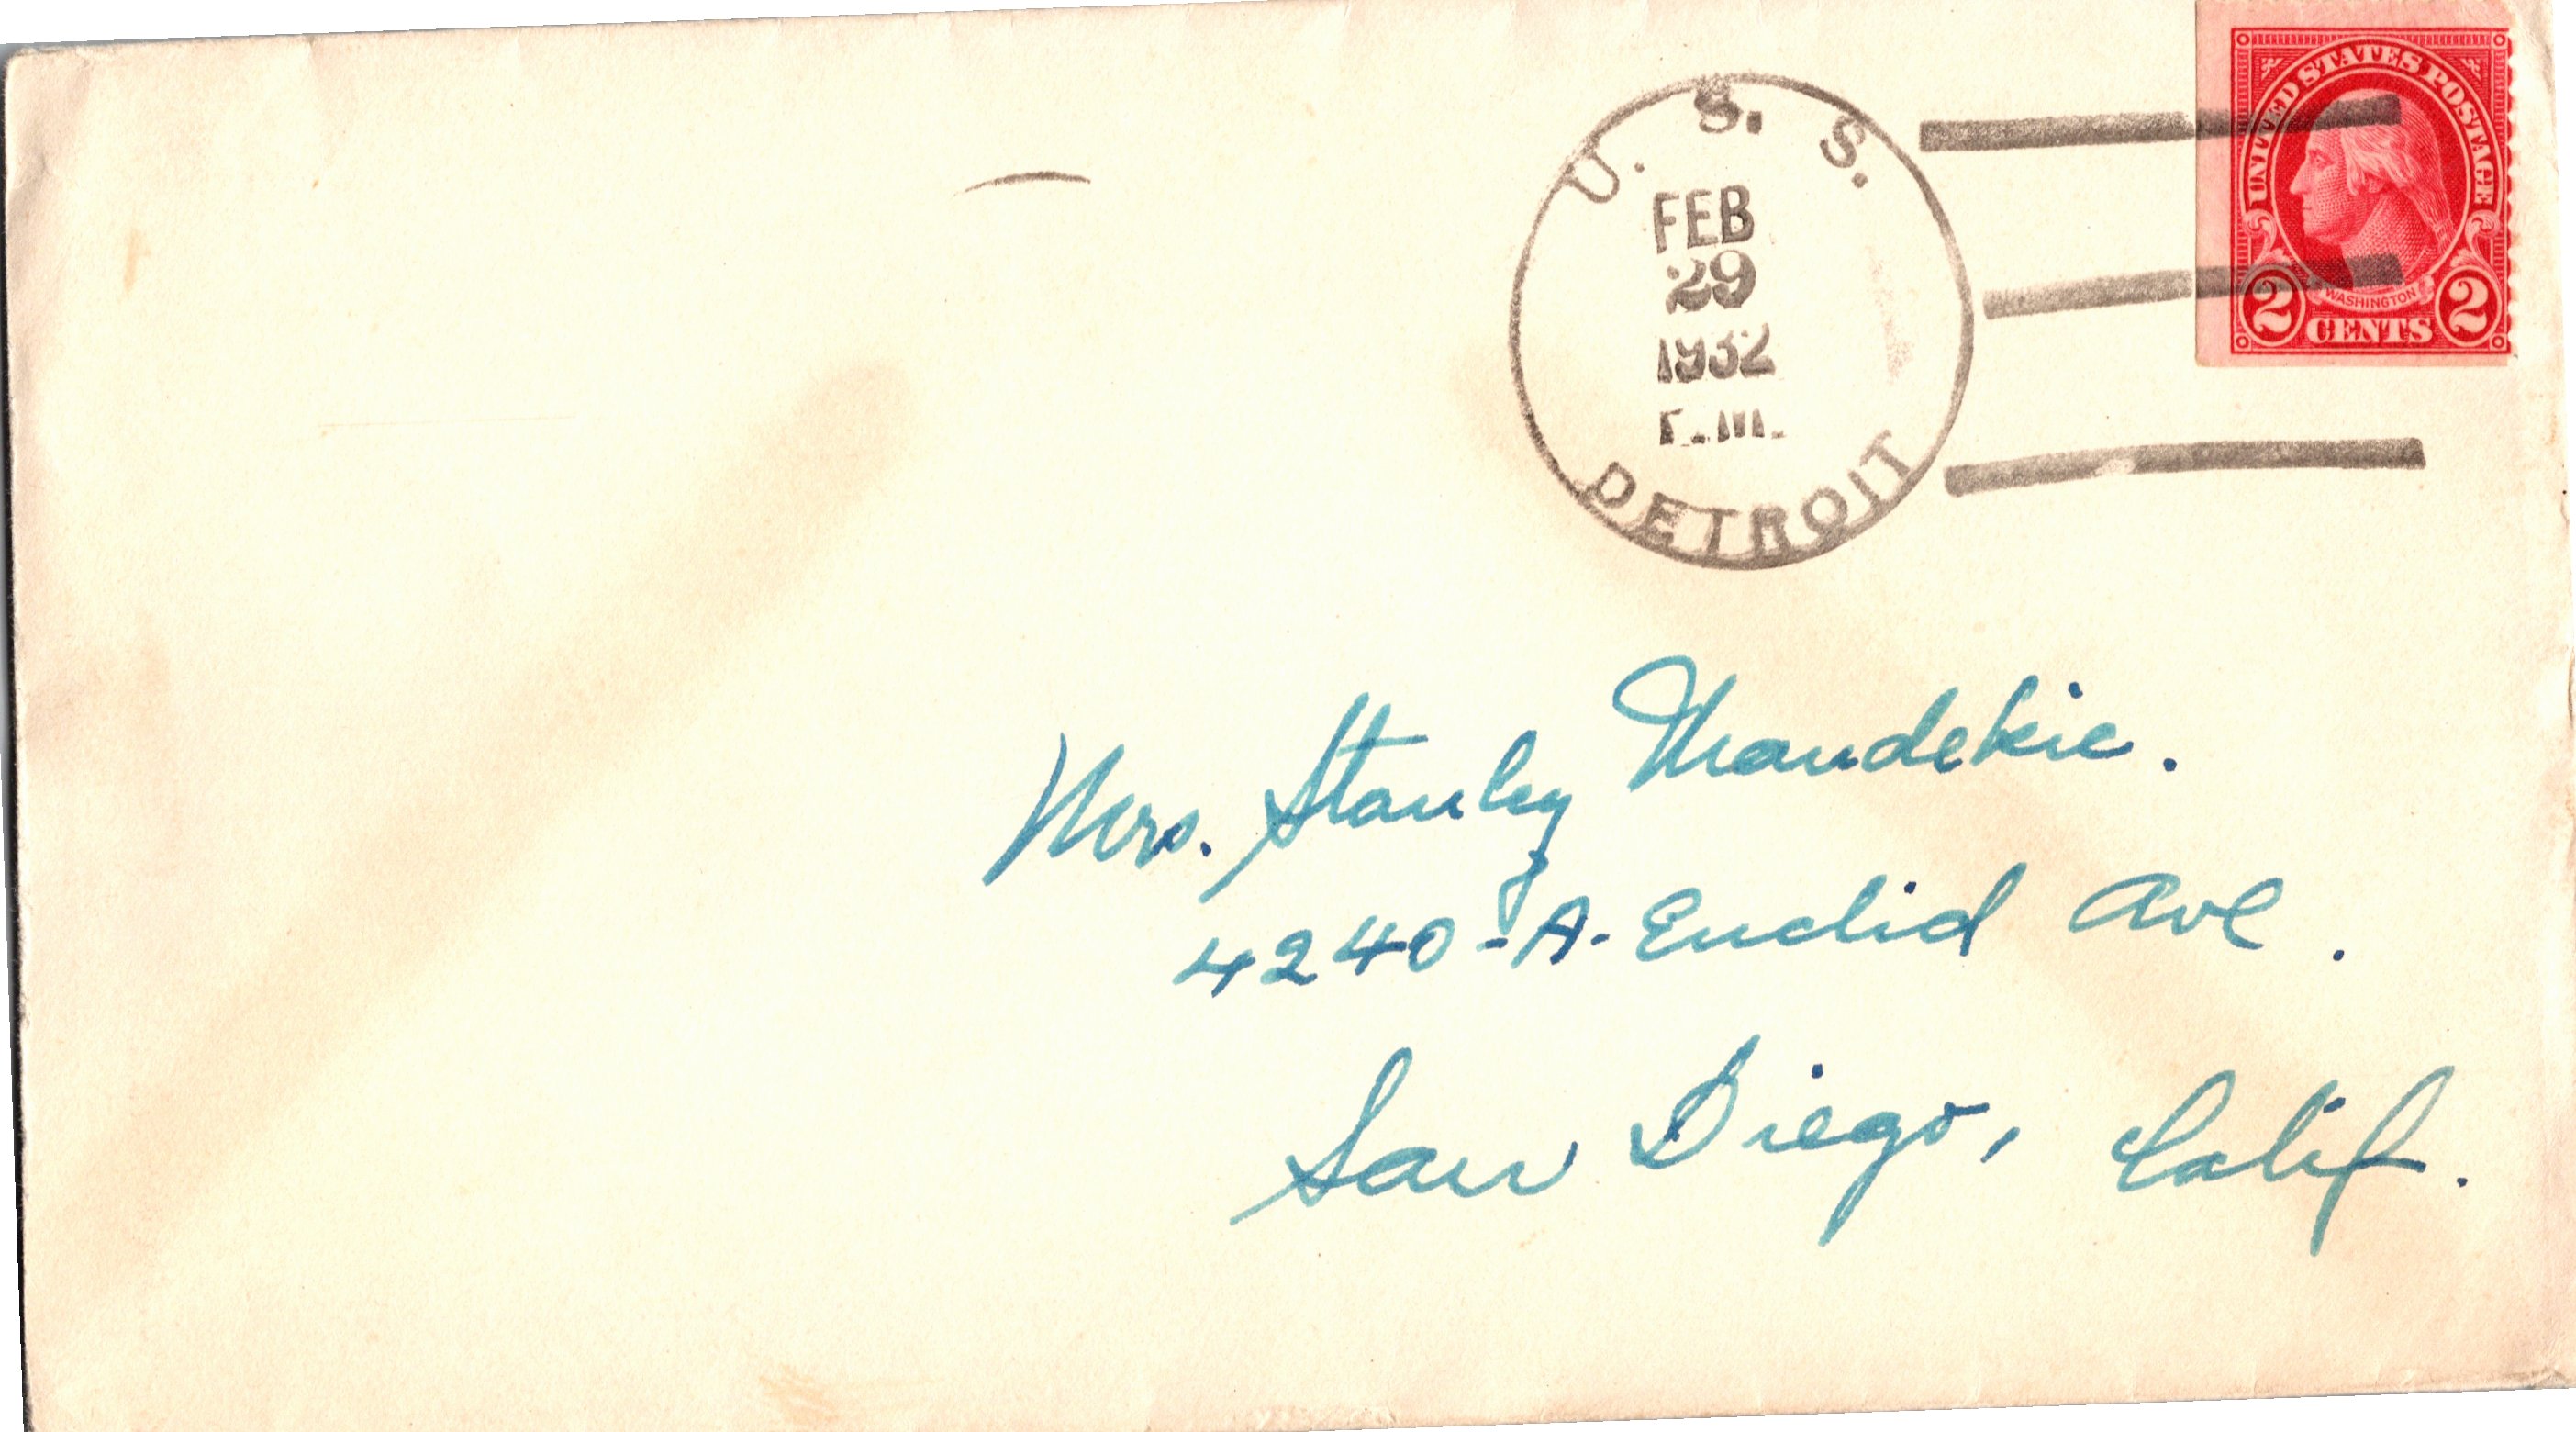 U. S. S.
FEB
29
1932
DETROIT
UNITED STATES POSTAGE
WASHINGTON
2 CENTS 2
Mrs. Stanley
4240-A. Euclid Ave.
San Diego, Calif.